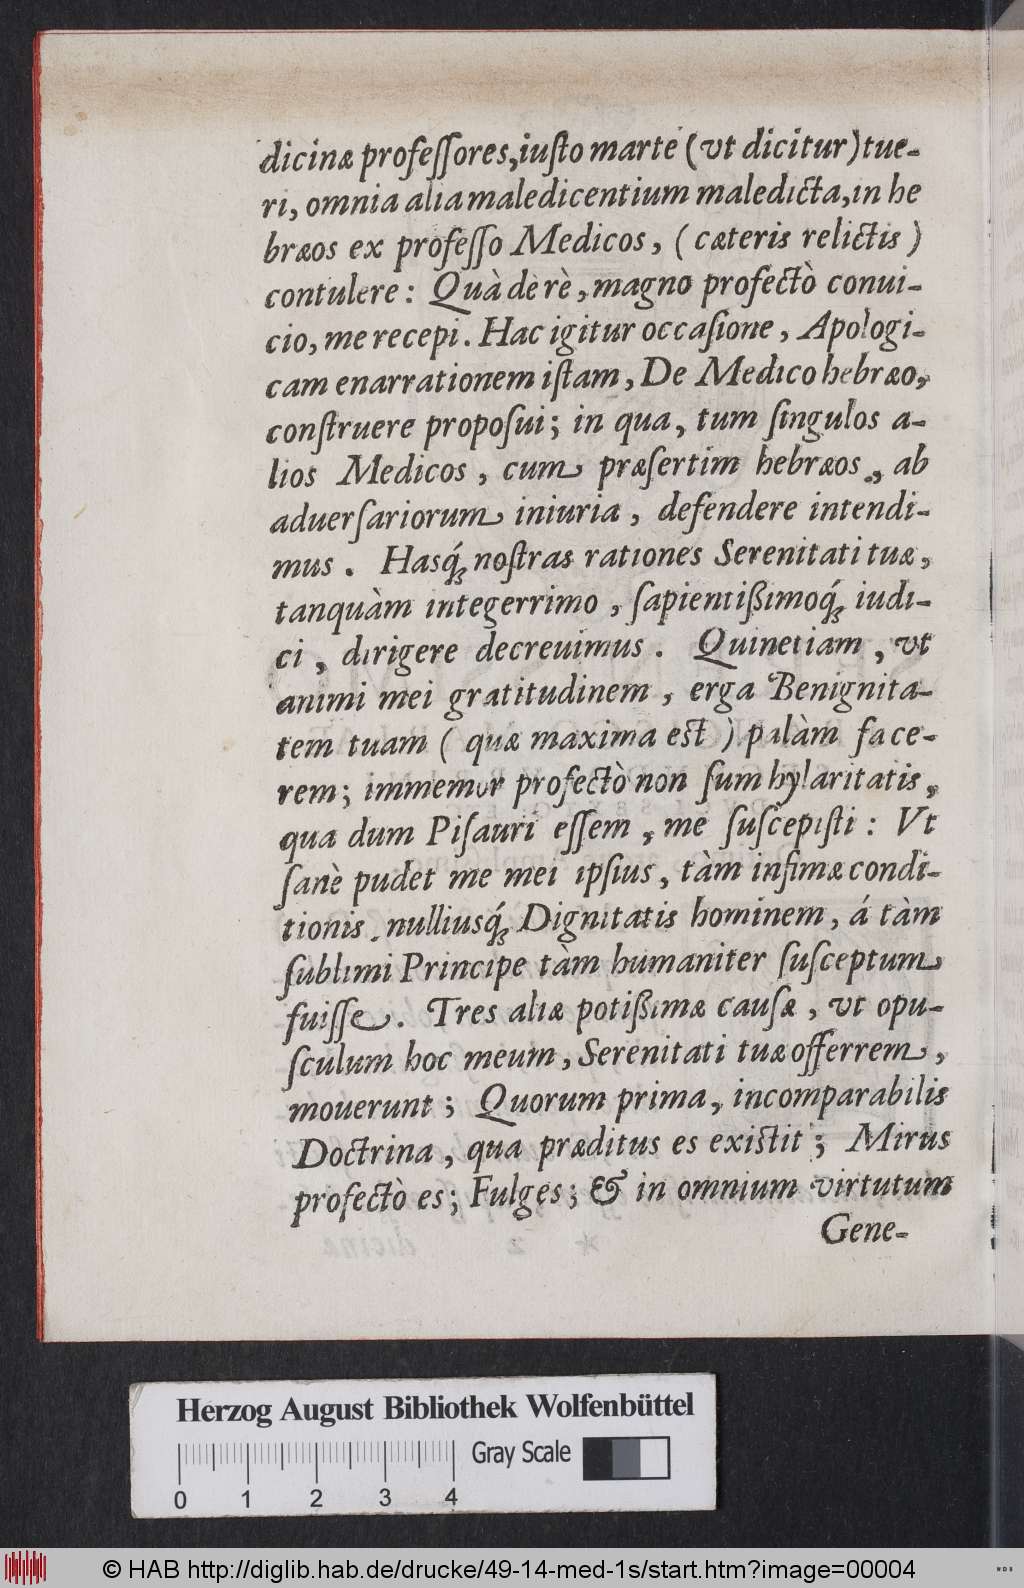 dicinæ professores,iusto marte (vt dicitur) tue-
ri, omnia alia maledicentium maledicta,in he
bræos ex professo Medicos, (cæteris relictis)
contulere: Quà de rè, magno profectò conui-
cio, me recepi. Hac igitur occasione, Apologi-
cam enarrationem istam, De Medico hebræo,
construere proposui; in qua, tum singulos a-
lios Medicos, cum præsertim hebræos, ab
aduersariorum iniuria, defendere intendi-
mus. Hasq́; nostras rationes Serenitati tuæ,
tanquàm integerrimo, sapientißimoq́; iudi-
ci, dirigere decreuimus. Quinetiam, vt
animi mei gratitudinem, erga Benignita-
tem tuam (quæ maxima est) palàm face-
rem; immemor profectò non sum hylaritatis,
qua dum Pisauri essem, me suscepisti: Vt
sanè pudet me mei ipsius, tàm infimæ condi-
tionis, nulliusq́; Dignitatis hominem, á tàm
sublimi Principe tàm humaniter susceptum
fuisse. Tres aliæ potißimæ causæ, vt opu-
sculum hoc meum, Serenitati tuæ offerrem,
mouerunt; Quorum prima, incomparabilis
Doctrina, qua præditus es existit; Mirus
profectò es; Fulges; & in omnium virtutum
Gene-
Herzog August Bibliothek Wolfenbüttel
Gray Scale
0 1 2 3 4
© HAB http://diglib.hab.de/drucke/49-14-med-1s/start.htm?image=00004